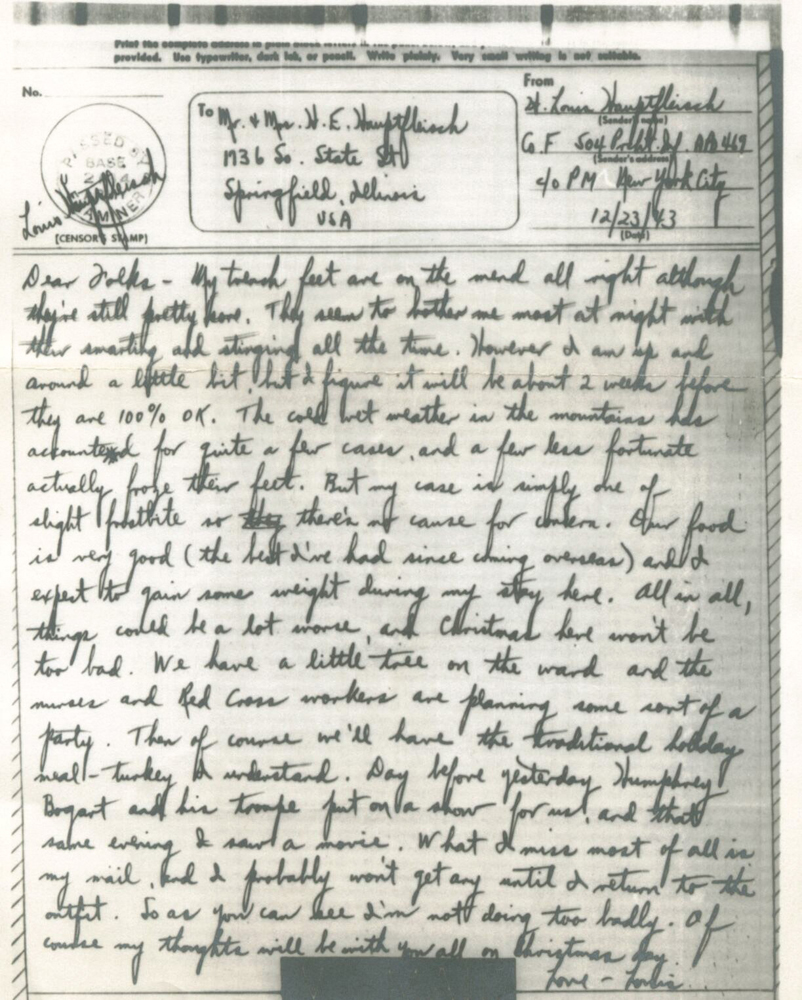 Print the complete address in plain block letters in the
provided. Use typewriter, dark ink, or pencil. Write plainly. Very small writing is not suitable.
No.
PASSED BY
BASE
EXAMINER
Louis Hauptfleisch
[CENSOR'S STAMP]
To Mr. & Mrs. H. E. Hauptfleisch
1736 So. State St
Springfield, Illinois
USA
From
H. Louis Hauptfleisch
(Sender's name)
Co. F 504 Prcht. Inf. APO 469
(Sender's address)
c/o PM New York City
12/23/43
(Date)
Dear Folks - My trench feet are on the mend all right although
they're still pretty sore. They seem to bother me most at night with
their smarting and stinging all the time. However I am up and
around a little bit, but I figure it will be about 2 weeks before
they are 100% OK. The cold wet weather in the mountains has
accounted for quite a few cases, and a few less fortunate
actually froze their feet. But my case is simply one of
slight frostbite so there's no cause for concern. Our food
is very good (the best I've had since coming overseas) and I
expect to gain some weight during my stay here. All in all,
things could be a lot worse, and Christmas here won't be
too bad. We have a little tree on the ward and the
nurses and Red Cross workers are planning some sort of a
party. Then of course we'll have the traditional holiday
meal - turkey I understand. Day before yesterday Humphrey
Bogart and his troupe put on a show for us, and that
same evening I saw a movie. What I miss most of all is
my mail, and I probably won't get any until I return to the
outfit. So as you can see I'm not doing too badly. Of
course my thoughts will be with you all on Christmas day.
Love - Louis